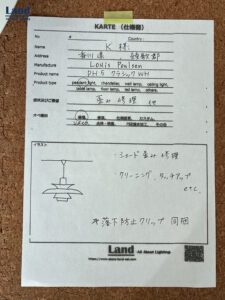 Land
KARTE （仕様書）
No #
Country :
Name K 様
Address 香川県 綾歌郡
Manufacturer Louis Poulsen
Product name PH5 クラシックWH
Product type pendant light, chandelier, wall lamp, ceiling light,
table lamp, floor lamp, led lamp, others
歪み修理 他
イラスト
・シェード歪み修理
・クリーニング、タッチアップ
etc.
※落下防止クリップ 同梱
Land All About Lighting